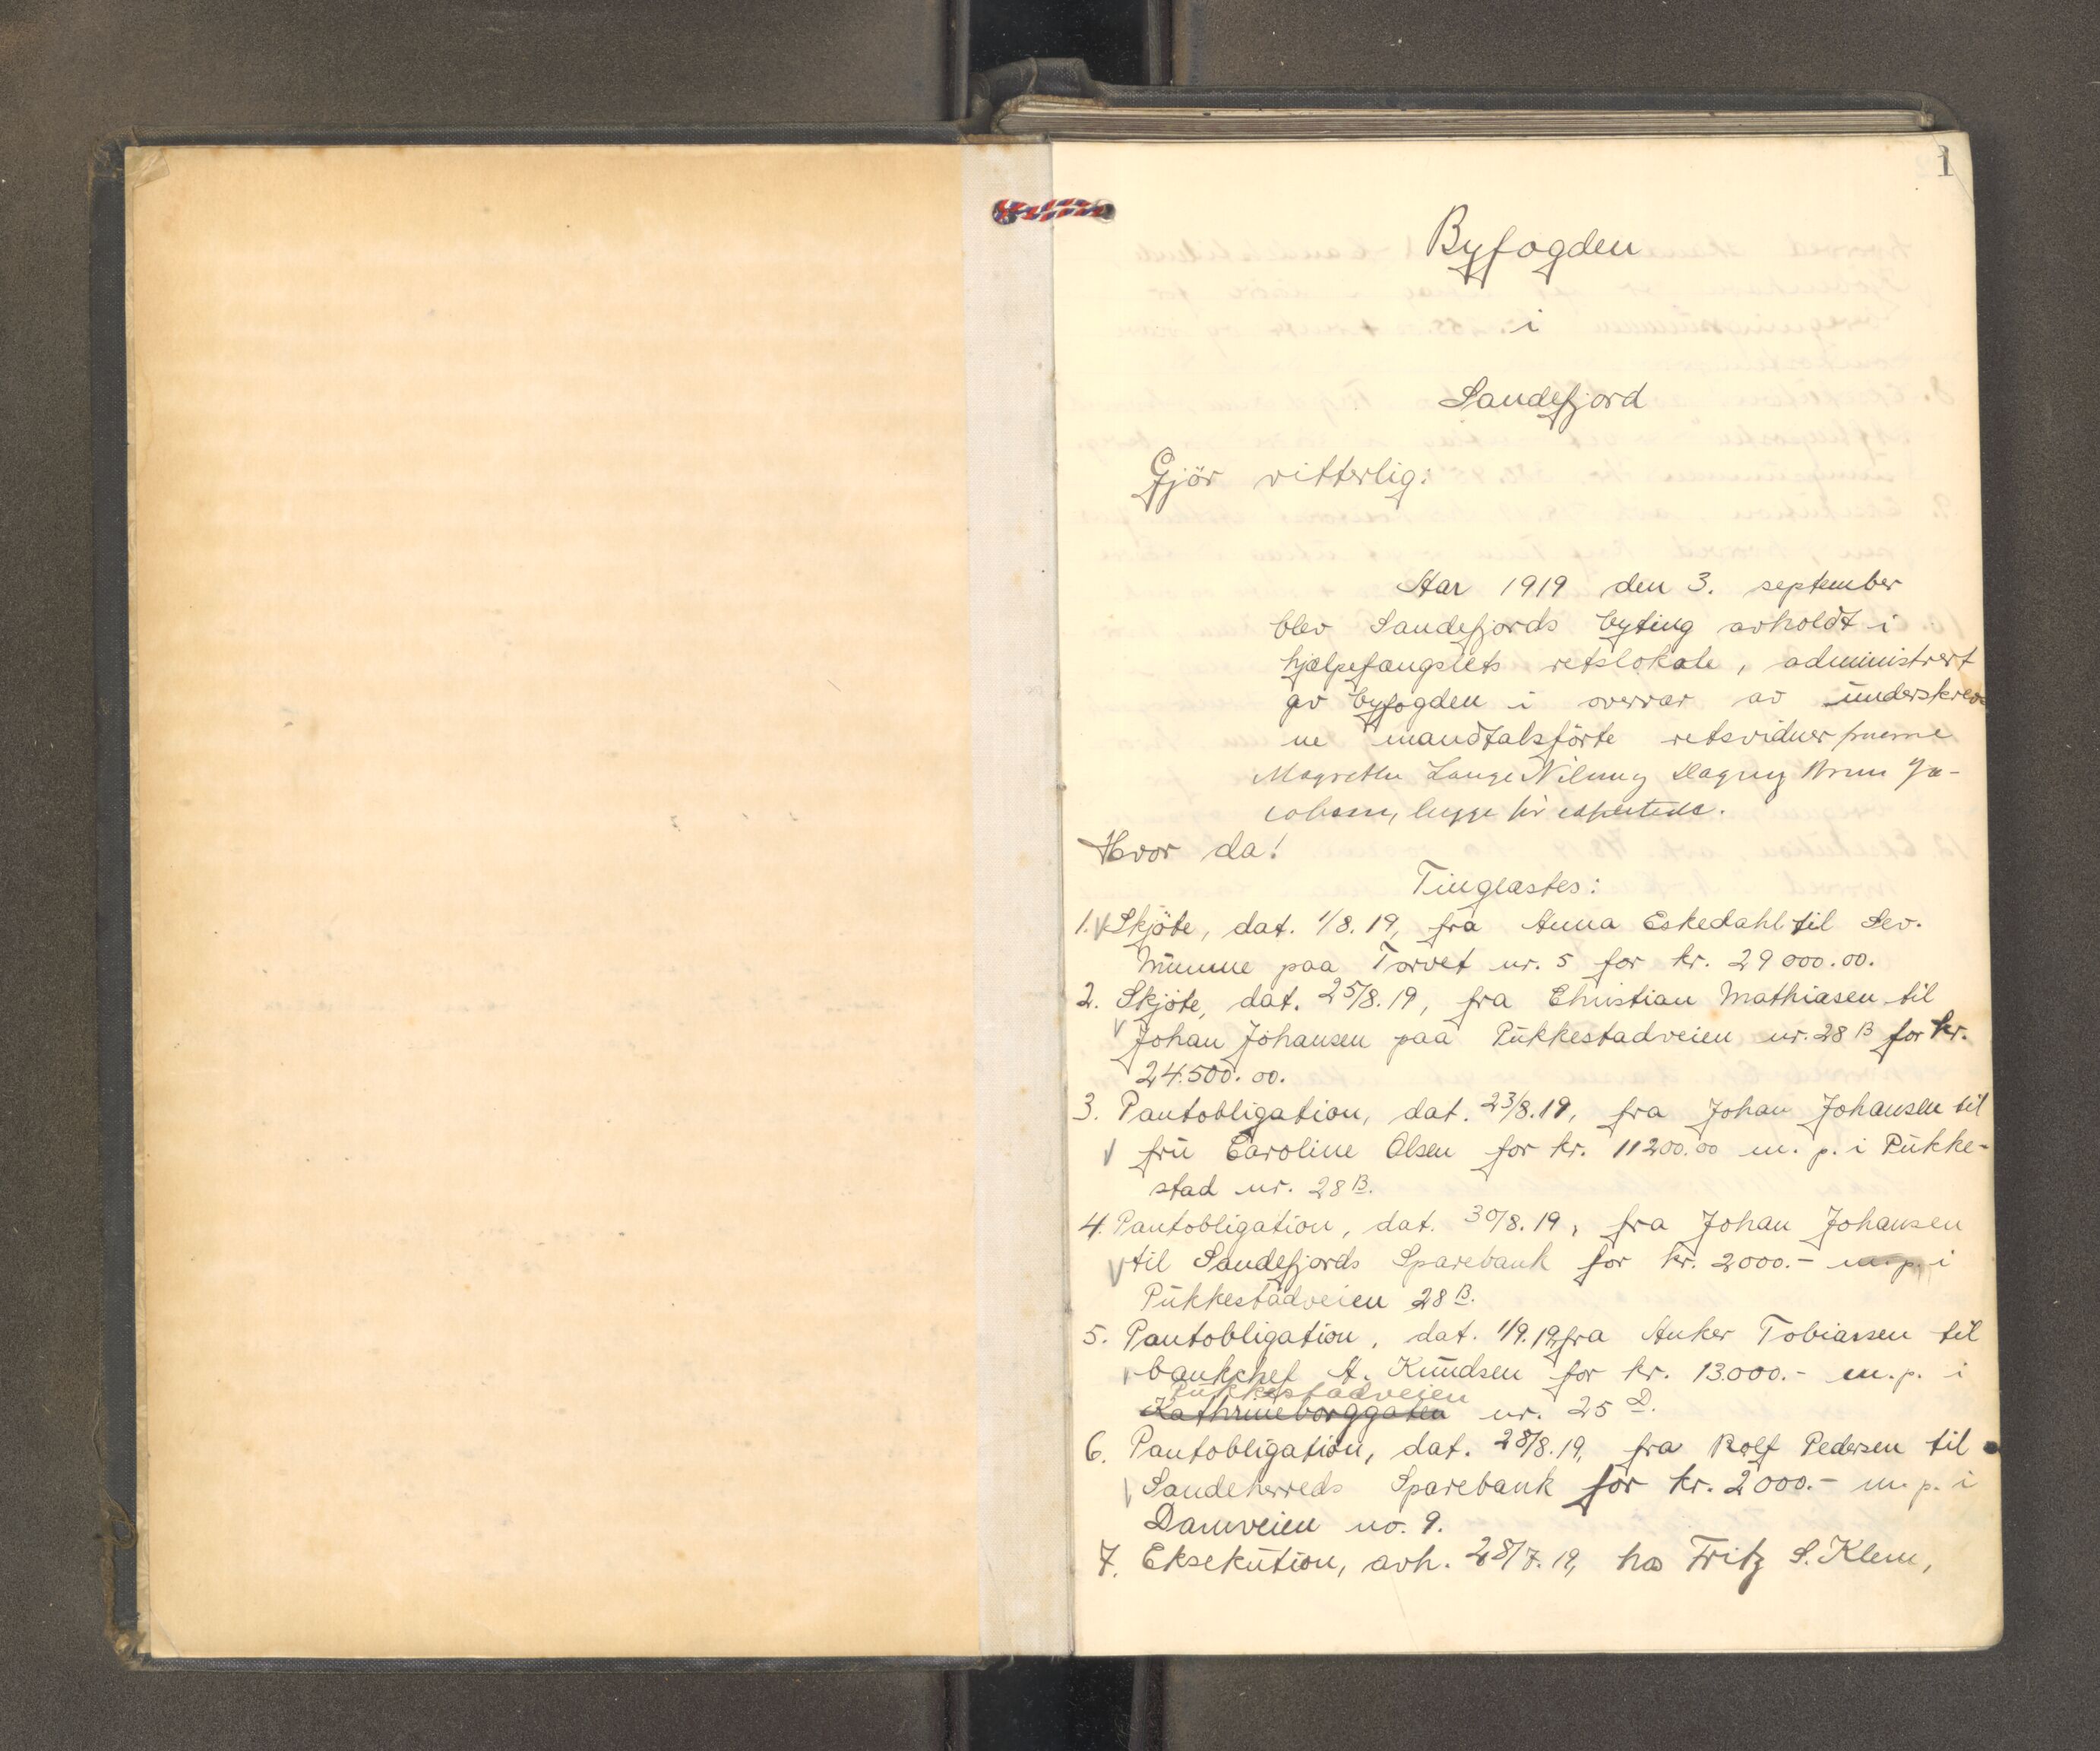 1
Byfogden
i
Sandefjord
Gjör vitterlig:
Aar 1919 den 3. september
blev Sandefjords byting avholdt i
hjælpefængslets retslokale, administrert
av byfogden i overvær av underskrev-
ne mandtalsförte retsvidner fruerne
Lange Nilsen og Dagny Brun Ja-
cobsen, begge
Hvor da!
Tinglæstes:
1. Skjöte, dat. 1/8. 19, fra Anna Eskedahl til Sev.
Mumme paa Torvet nr. 5 for kr. 29000.00.
2. Skjöte, dat. 25/8. 19, fra Christian Mathiasen til
Johan Johansen paa Pukkestadveien nr. 28 B for kr.
24.500.00.
3. Pantobligation, dat. 23/8. 19, fra Johan Johansen til
fru Caroline Olsen for kr. 11200.00 m. p. i Pukke-
stad nr. 28 B.
4. Pantobligation, dat. 30/8. 19, fra Johan Johansen
til Sandefjords Sparebank for kr. 2000.- m. p. i
Pukkestadveien 28 B.
5. Pantobligation, dat. 1/9. 19, fra Anker Tobiassen til
bankchef A. Knudsen for kr. 13.000.- m. p. i
Pukkestadveien
Kathrineborggaten nr. 25 D.
6. Pantobligation, dat. 28/8. 19, fra Rolf Pedersen til
Sandeherreds Sparebank for kr. 2000.- m. p. i
Damveien no. 9.
7. Eksekution, avh. 28/7. 19, hos Fritz S. Klem,